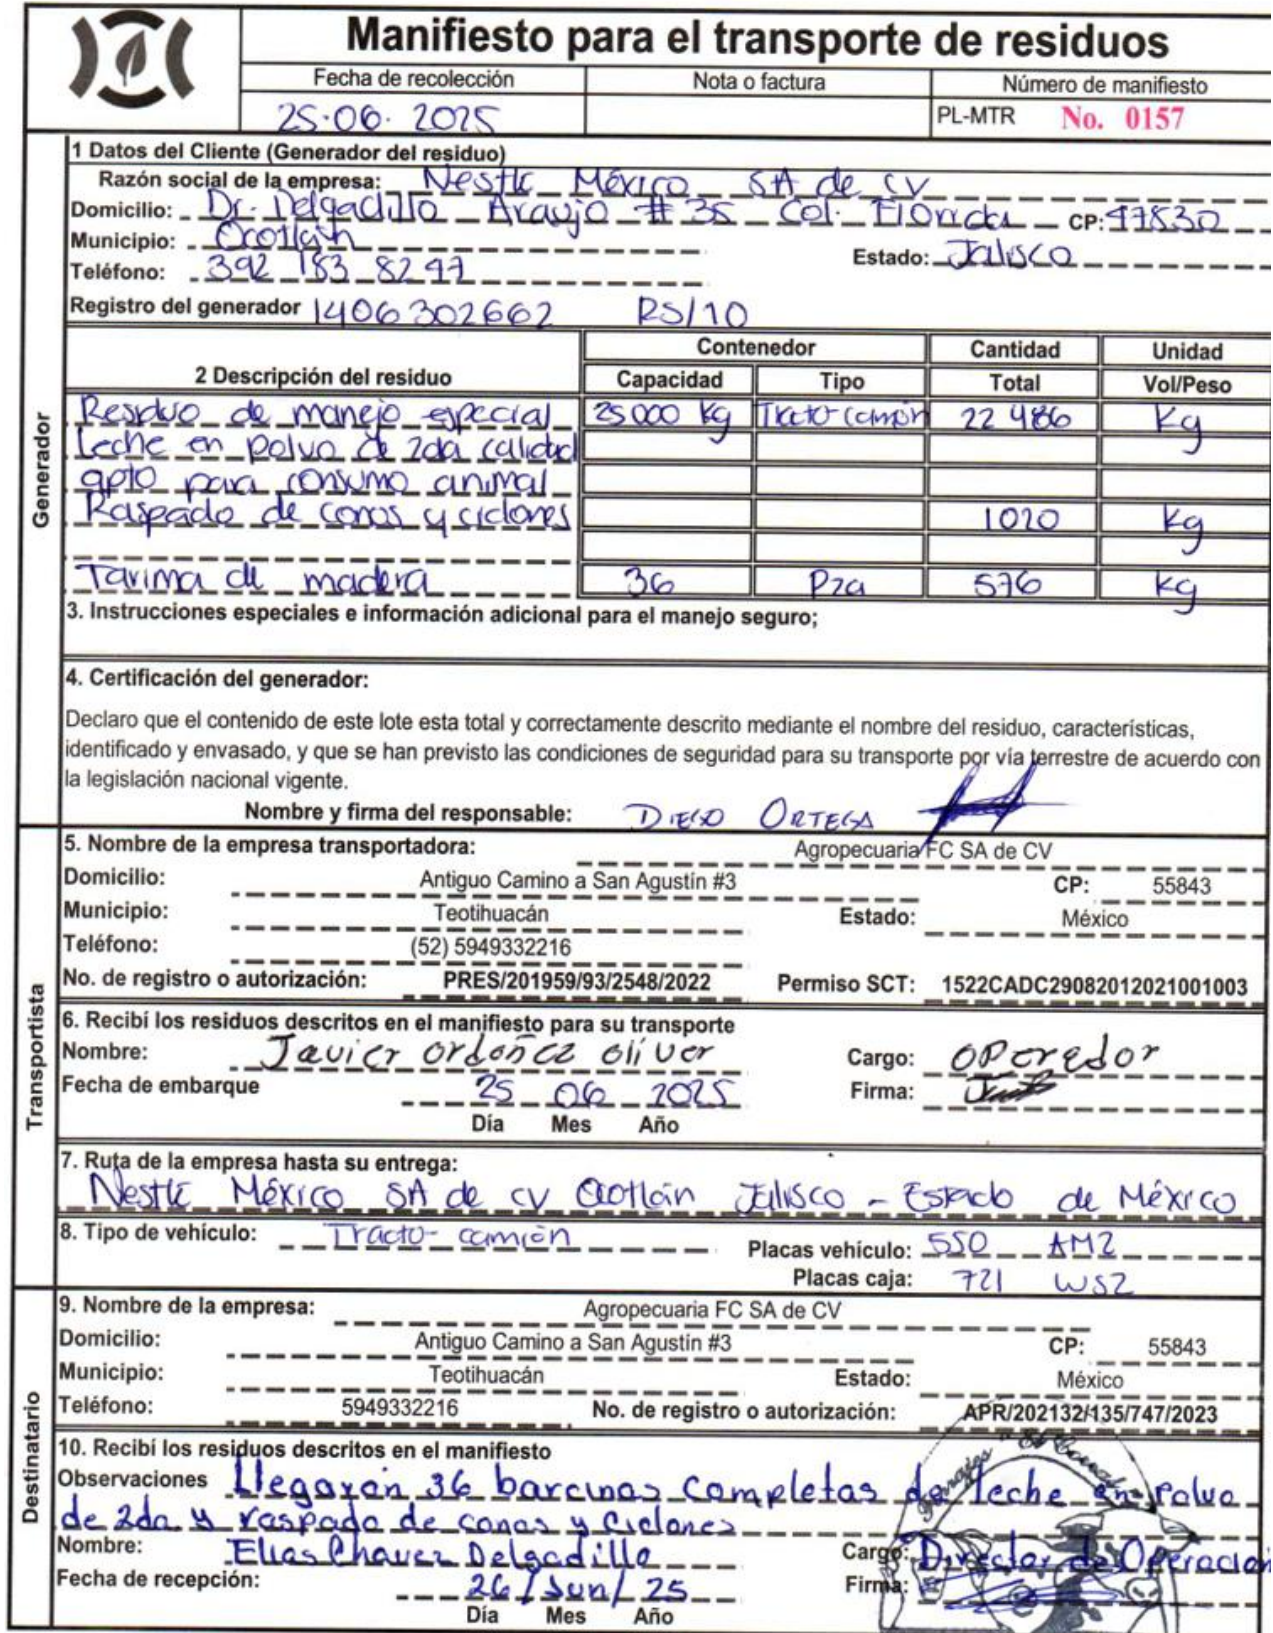 Manifiesto para el transporte de residuos
Fecha de recolección Nota o factura Número de manifiesto
25·06· 2025 PL-MTR No. 0157
1 Datos del Cliente (Generador del residuo)
Razón social de la empresa: Nestlé México SA de CV
Domicilio: Dr. Delgadillo Araujo # 35 Col. Florida CP: 47830
Municipio: Ocotlán Estado: Jalisco
Teléfono: 392 183 8297
Registro del generador 1406302662 RS/10
Contenedor Cantidad Unidad
2 Descripción del residuo Capacidad Tipo Total Vol/Peso
Residuo de manejo especial 25 000 Kg Tracto-camión 22 486 Kg
Leche en polvo de 2da calidad
apto para consumo animal
Raspado de conos y ciclones 1020 Kg
Tarima de madera 36 Pza 576 Kg
3. Instrucciones especiales e información adicional para el manejo seguro;
4. Certificación del generador:
Declaro que el contenido de este lote esta total y correctamente descrito mediante el nombre del residuo, características,
identificado y envasado, y que se han previsto las condiciones de seguridad para su transporte por vía terrestre de acuerdo con
la legislación nacional vigente.
Nombre y firma del responsable: DIEGO ORTEGA
5. Nombre de la empresa transportadora: Agropecuaria FC SA de CV
Domicilio: Antiguo Camino a San Agustín #3 CP: 55843
Municipio: Teotihuacán Estado: México
Teléfono: (52) 5949332216
No. de registro o autorización: PRES/201959/93/2548/2022 Permiso SCT: 1522CADC29082012021001003
6. Recibí los residuos descritos en el manifiesto para su transporte
Nombre: Javier ordoñez olíver Cargo: operador
Fecha de embarque 25 06 2025 Firma:
Día Mes Año
7. Ruta de la empresa hasta su entrega:
Nestlé México SA de CV Ocotlán Jalisco - Estado de México
8. Tipo de vehículo: Tracto-camión Placas vehículo: 550 AM2
Placas caja: 721 WS2
9. Nombre de la empresa: Agropecuaria FC SA de CV
Domicilio: Antiguo Camino a San Agustín #3 CP: 55843
Municipio: Teotihuacán Estado: México
Teléfono: 5949332216 No. de registro o autorización: APR/202132/135/747/2023
10. Recibí los residuos descritos en el manifiesto
Observaciones Llegaron 36 barcinas completas de leche en polvo
de 2da y raspado de conos y ciclones
Nombre: Elias Chavez Delgadillo Cargo: Director de Operacion
Fecha de recepción: 26/Jun/25 Firma:
Día Mes Año
Generador
Transportista
Destinatario
Forrajes "El Corralon